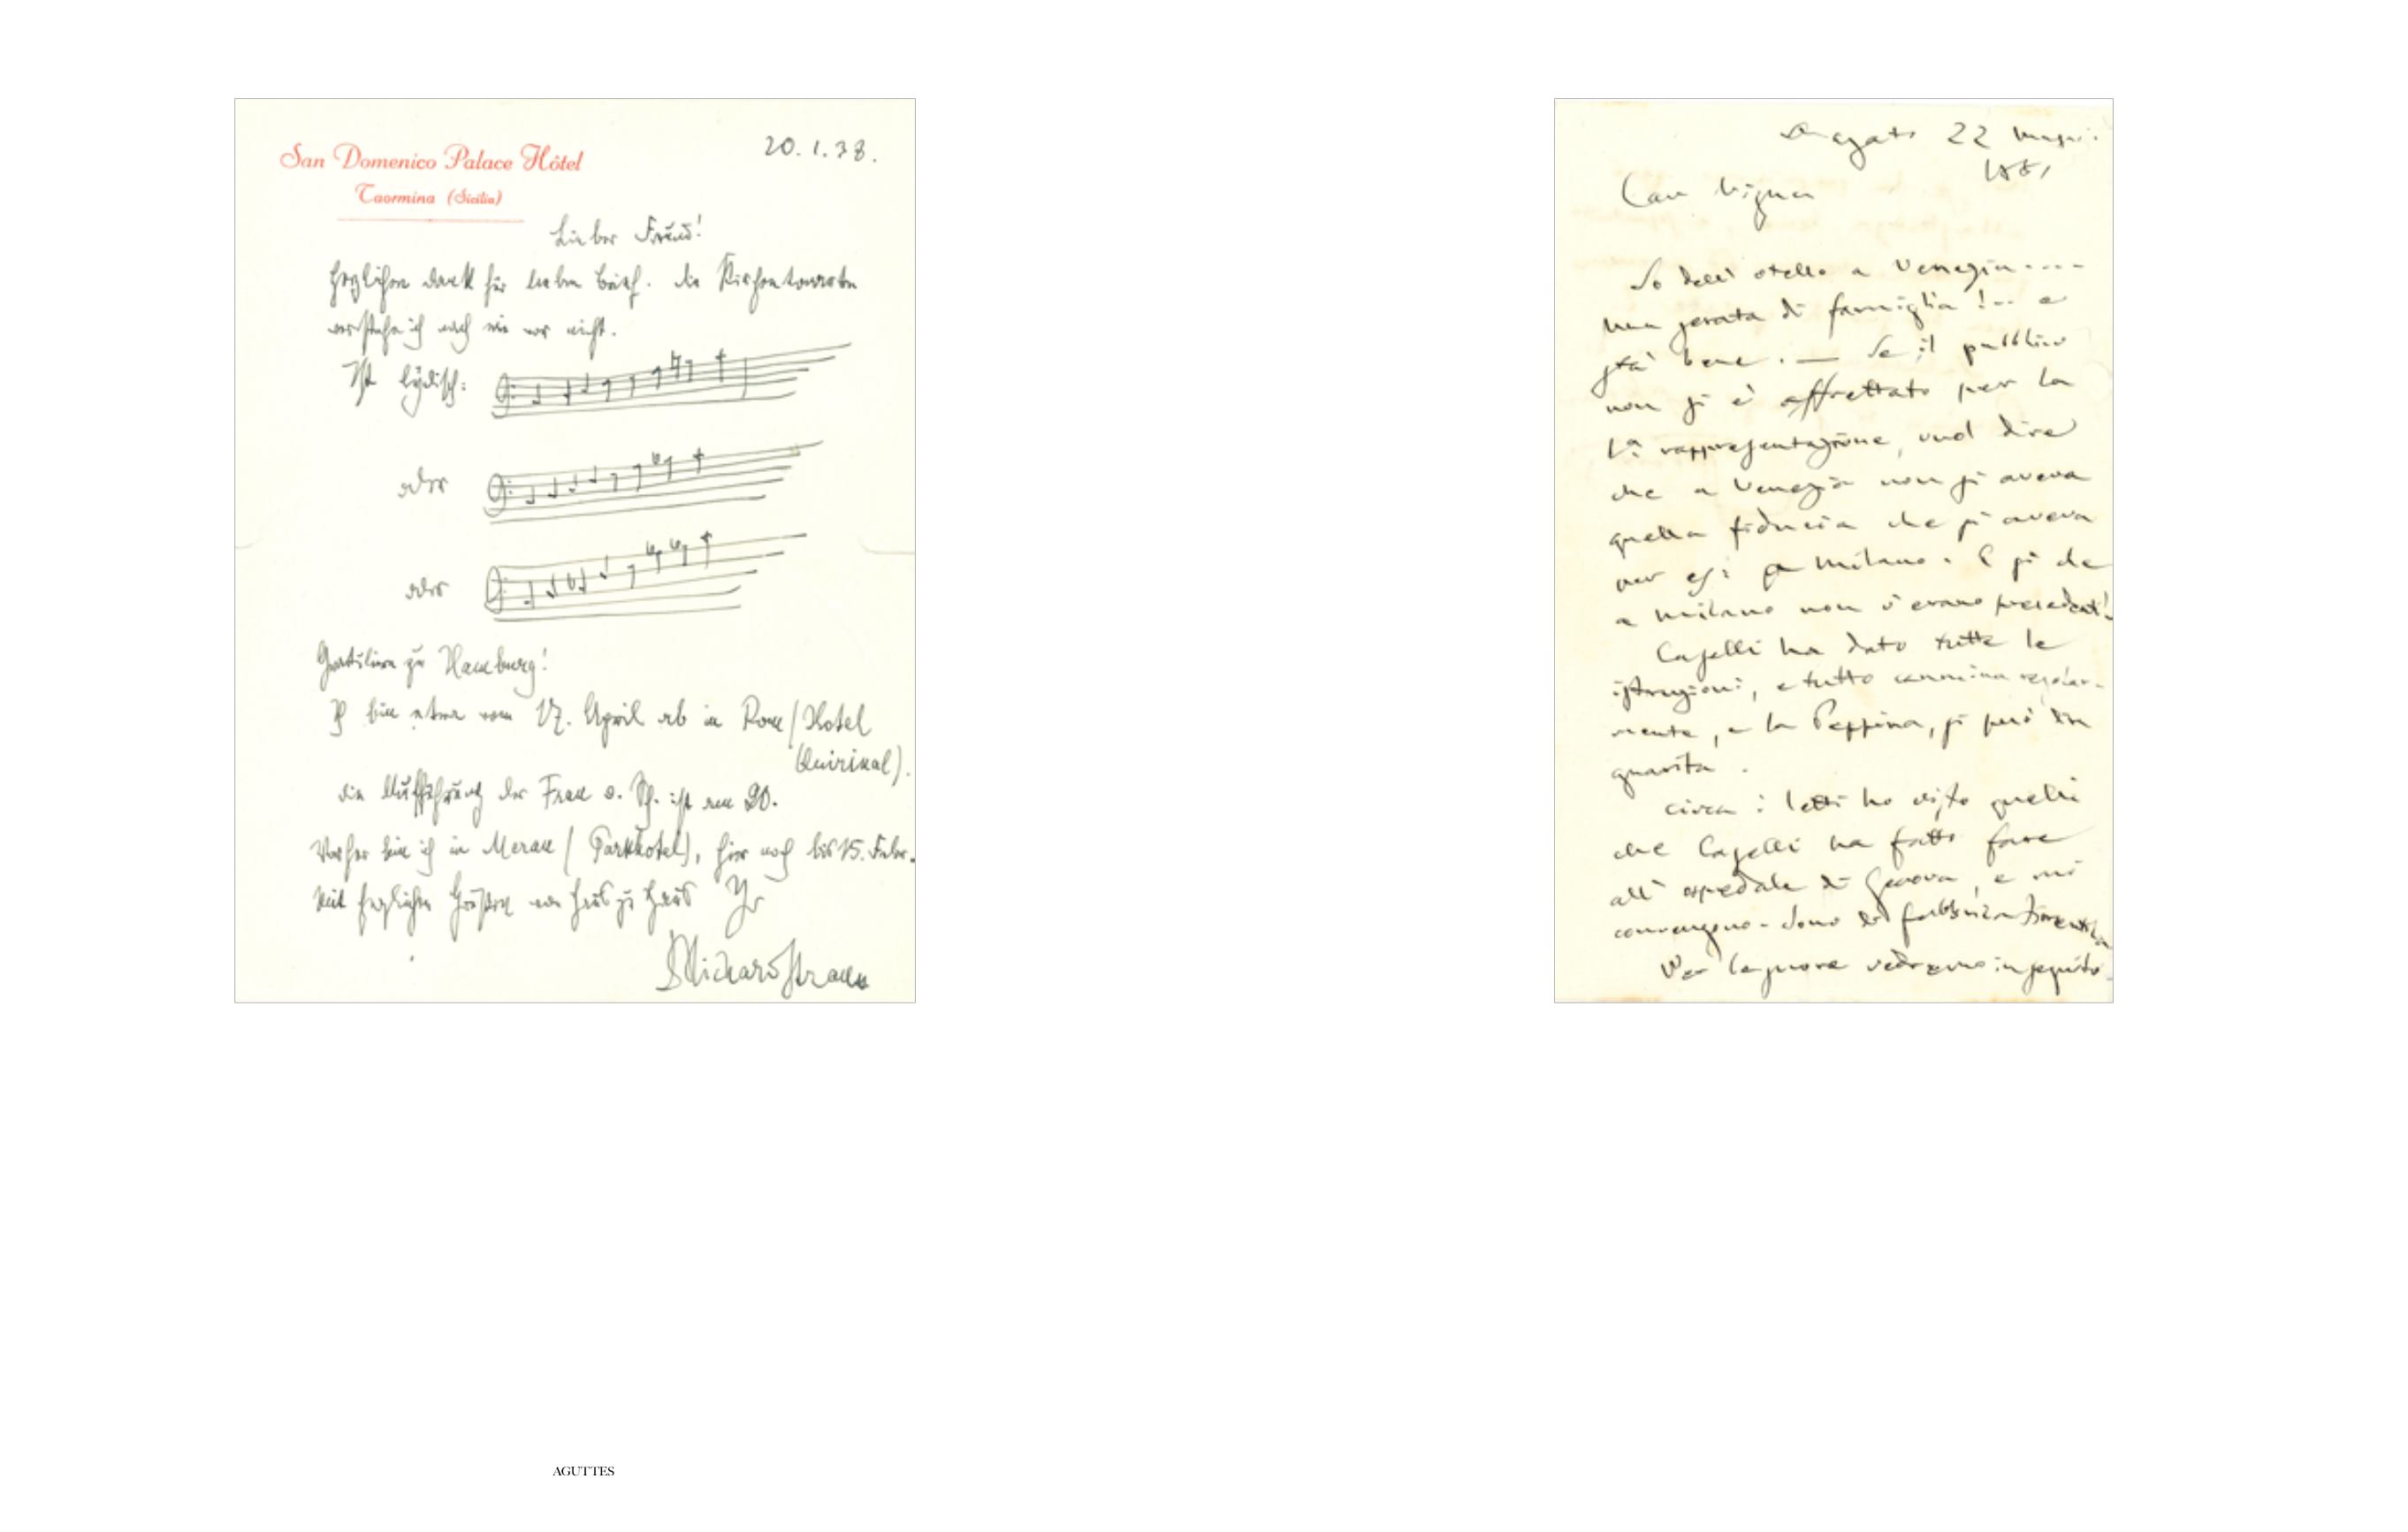 San Domenico Palace Hôtel
Taormina (Sicilia)
20.1.38.
Lieber Freund!
Herzlichen Dank für lieben Brief. Die Kirchentonarten
verstehe ich nach wie vor nicht.
Ist lydisch:
oder
oder
Gratuliere zu Hamburg!
Ich bin etwa vom 17. April ab in Rom/Hotel
Quirinal).
die Aufführung der Frau o. Sch. ist am 20.
Vorher bin ich in Meran (Parkhotel), hier noch bis 15. Febr.
Mit herzlichen Grüßen von Haus zu Haus Ihr
Richard Strauss
AGUTTES
22
Caro Vigna
So dell' otello a Venezia....
una serata di famiglia!... e
stà bene. — Se il pubblico
non si è affrettato per la
1ª rappresentazione, vuol dire
che a Venezia non si aveva
quella fiducia che si aveva
per a Milano. E si che
a Milano non v'erano precedenti.
Caselli ha dato tutte le
istruzioni, e tutto cammina regolar-
mente, e la Peppina, si può dire
guarita.
Circa i letti ho visto quelli
che Caselli ha fatto fare
all' ospedale di Genova, e mi
convengono - Sono di fabbrica
Per le suore vedremo in seguito.